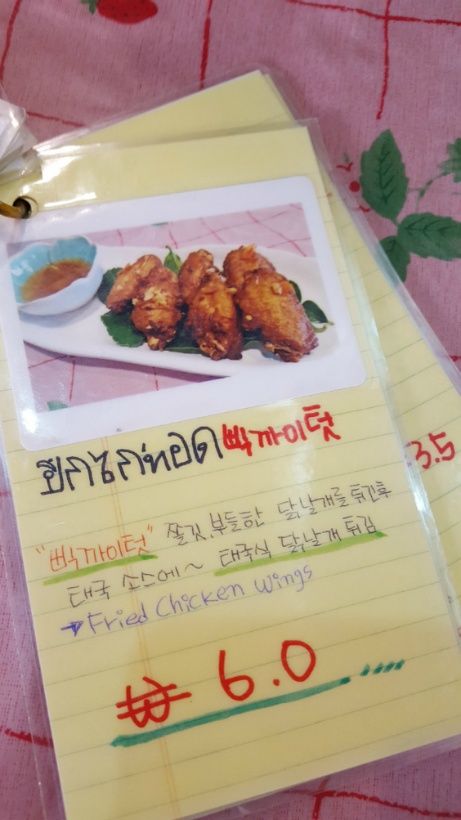 ปีกไก่ทอด 삑까이텃
"삑까이텃" 쫄깃, 부들한 닭날개를 튀긴후
태국 소스에~ 태국식 닭날개 튀김
→ Fried Chicken Wings
₩ 6.0
3.5